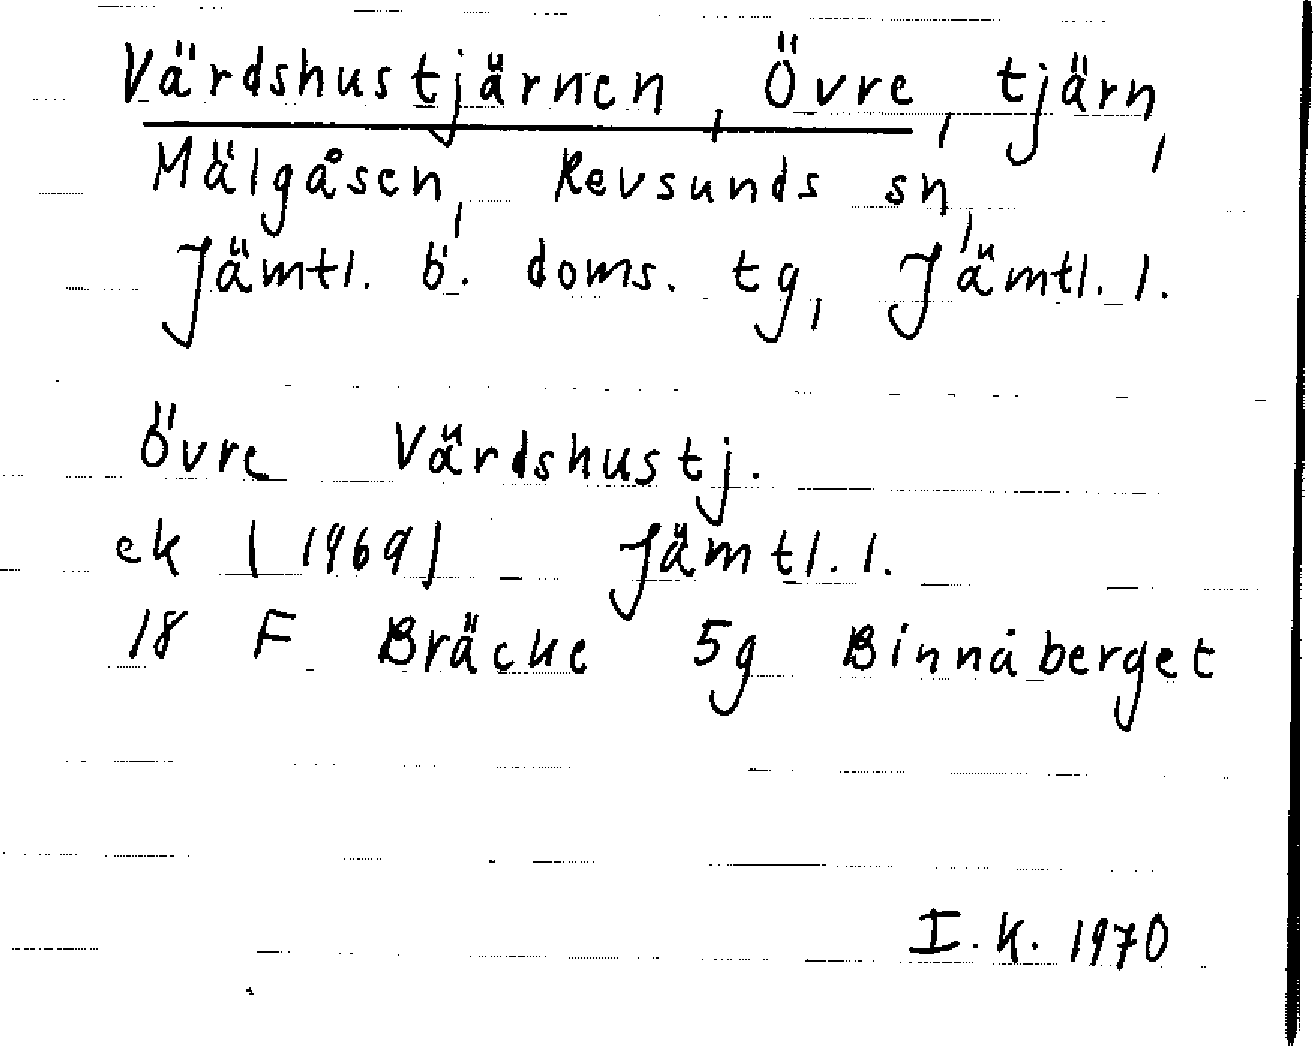 Värdshustjärnen, Övre, tjärn,
Mälgåsen, Revsunds sn,
Jämtl. ö. doms. tg, Jämtl. l.
Övre Värdshustj.
ek (1969) Jämtl. l.
18 F Bräcke 5g Binnåberget
I. K. 1970